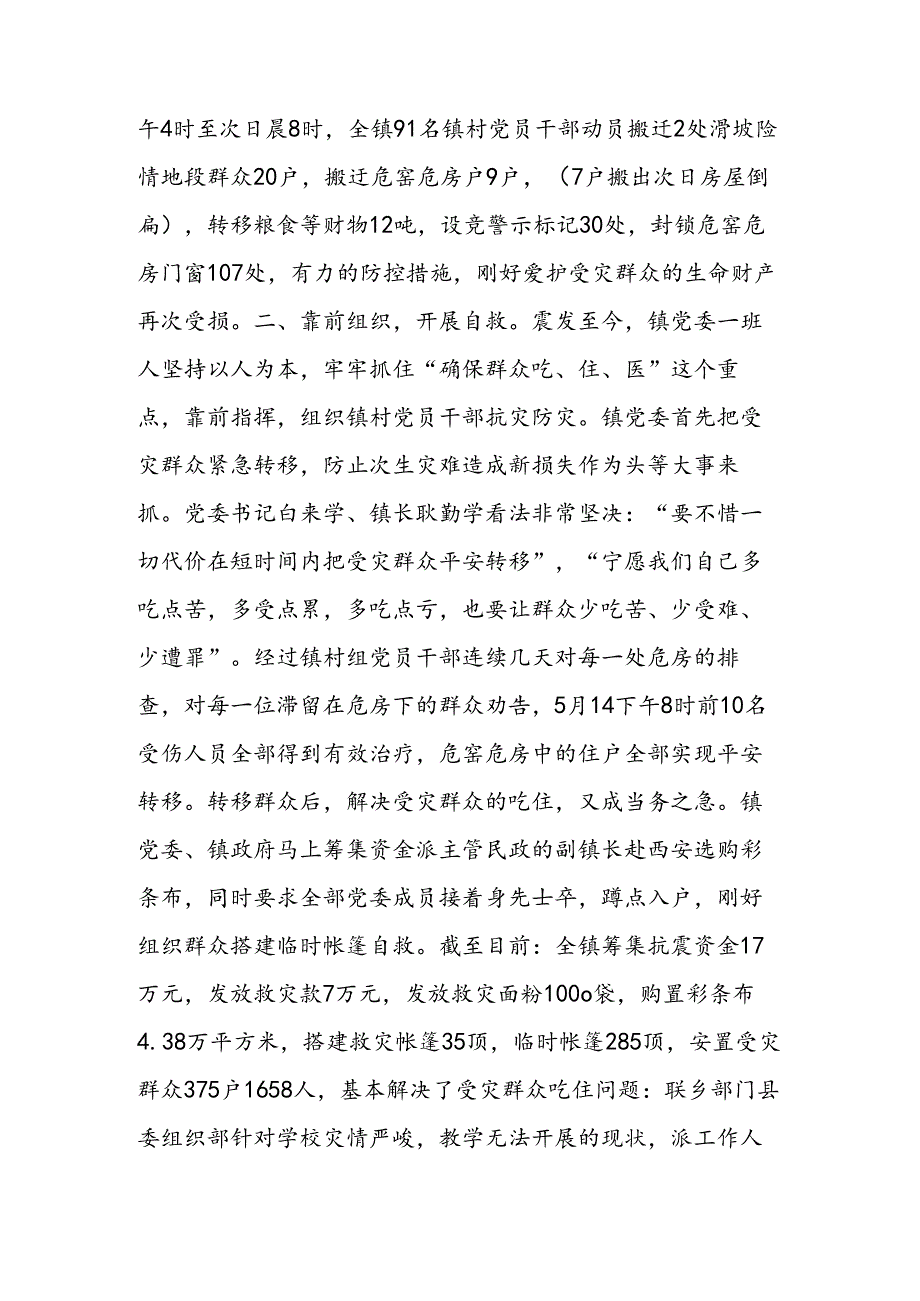 午4时至次日晨8时，全镇91名镇村党员干部动员搬迁2处滑坡险
情地段群众20户，搬迂危窑危房户9户，（7户搬出次日房屋倒
扁），转移粮食等财物12吨，设竞警示标记30处，封锁危窑危
房门窗107处，有力的防控措施，刚好爱护受灾群众的生命财产
再次受损。二、靠前组织，开展自救。震发至今，镇党委一班
人坚持以人为本，牢牢抓住“确保群众吃、住、医”这个重
点，靠前指挥，组织镇村党员干部抗灾防灾。镇党委首先把受
灾群众紧急转移，防止次生灾难造成新损失作为头等大事来
抓。党委书记白来学、镇长耿勤学看法非常坚决：“要不惜一
切代价在短时间内把受灾群众平安转移”，“宁愿我们自己多
吃点苦，多受点累，多吃点亏，也要让群众少吃苦、少受难、
少遭罪”。经过镇村组党员干部连续几天对每一处危房的排
查，对每一位滞留在危房下的群众劝告，5月14下午8时前10名
受伤人员全部得到有效治疗，危窑危房中的住户全部实现平安
转移。转移群众后，解决受灾群众的吃住，又成当务之急。镇
党委、镇政府马上筹集资金派主管民政的副镇长赴西安选购彩
条布，同时要求全部党委成员接着身先士卒，蹲点入户，刚好
组织群众搭建临时帐篷自救。截至目前：全镇筹集抗震资金17
万元，发放救灾款7万元，发放救灾面粉100o袋，购置彩条布
4.38万平方米，搭建救灾帐篷35顶，临时帐篷285顶，安置受灾
群众375户1658人，基本解决了受灾群众吃住问题：联乡部门县
委组织部针对学校灾情严峻，教学无法开展的现状，派工作人